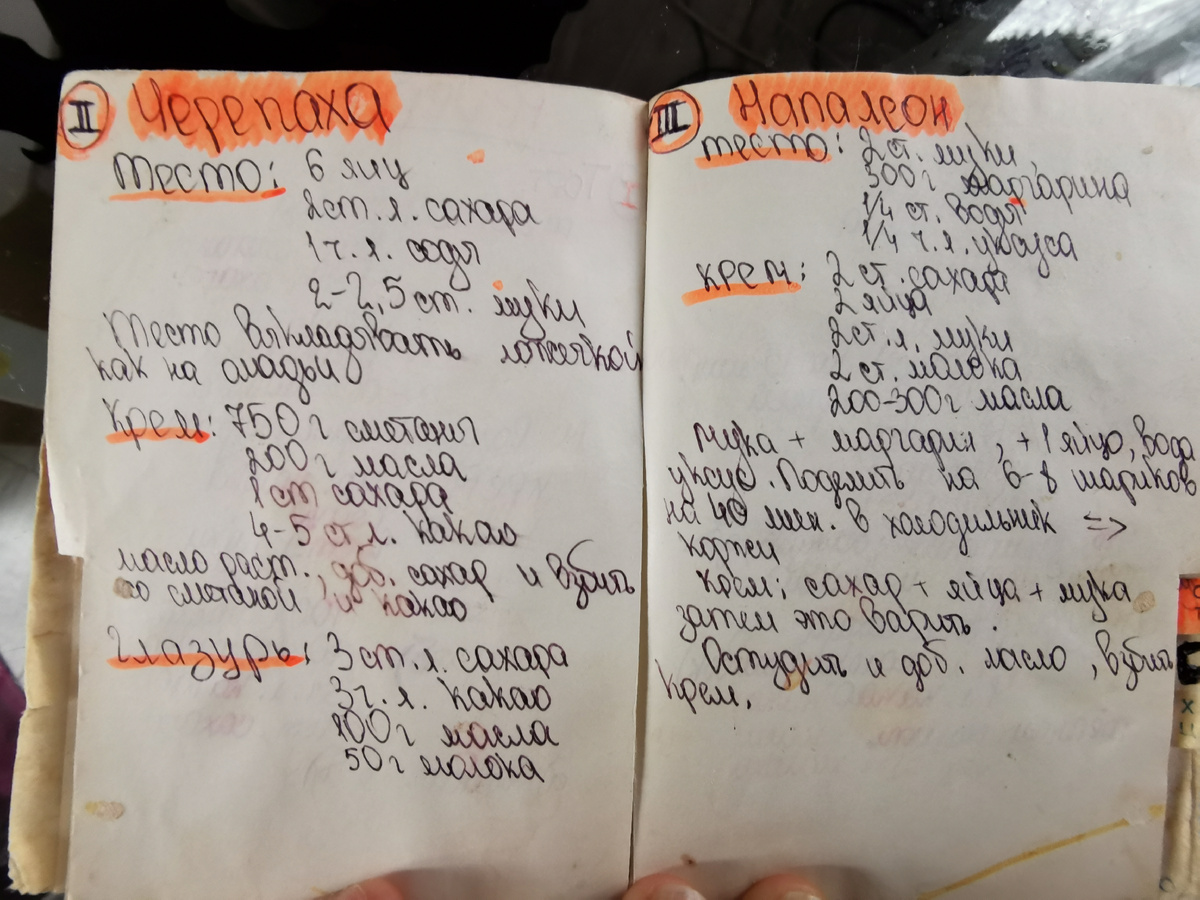 II Черепаха
Тесто: 6 яиц
2 ст. л. сахара
1 ч. л. соды
2-2,5 ст. муки
Тесто выкладывать ложечкой
как на оладьи
Крем: 750 г сметаны
200 г масла
1 ст сахара
4-5 ст л. какао
масло раст., доб. сахар и взбить
со сметаной и какао
Глазурь: 3 ст. л. сахара
3 ч. л. какао
100 г масла
50 г молока
III Напалеон
тесто: 2 ст. муки,
300 г маргарина
1/4 ст. воды
1/4 ч. л. уксуса
крем: 2 ст. сахара
2 яйца
2 ст. л. муки
2 ст. молока
200-300 г масла
Мука + маргарин, + 1 яйцо, вода
уксус. Поделить на 6-8 шариков
на 40 мин. в холодильник =>
коржи
Крем: сахар + яйца + мука
затем это варить.
Остудить и доб. масло, взбить
крем.